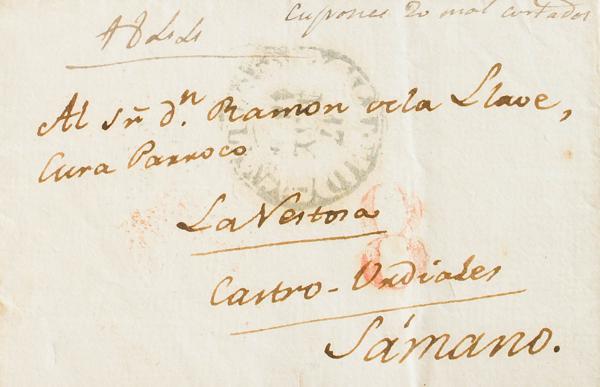 Cupones 20 mal cortados
Al Sr. dn. Ramon de la Llave,
Cura Parroco
La Nestosa
Castro-Urdiales
Sámano.
8